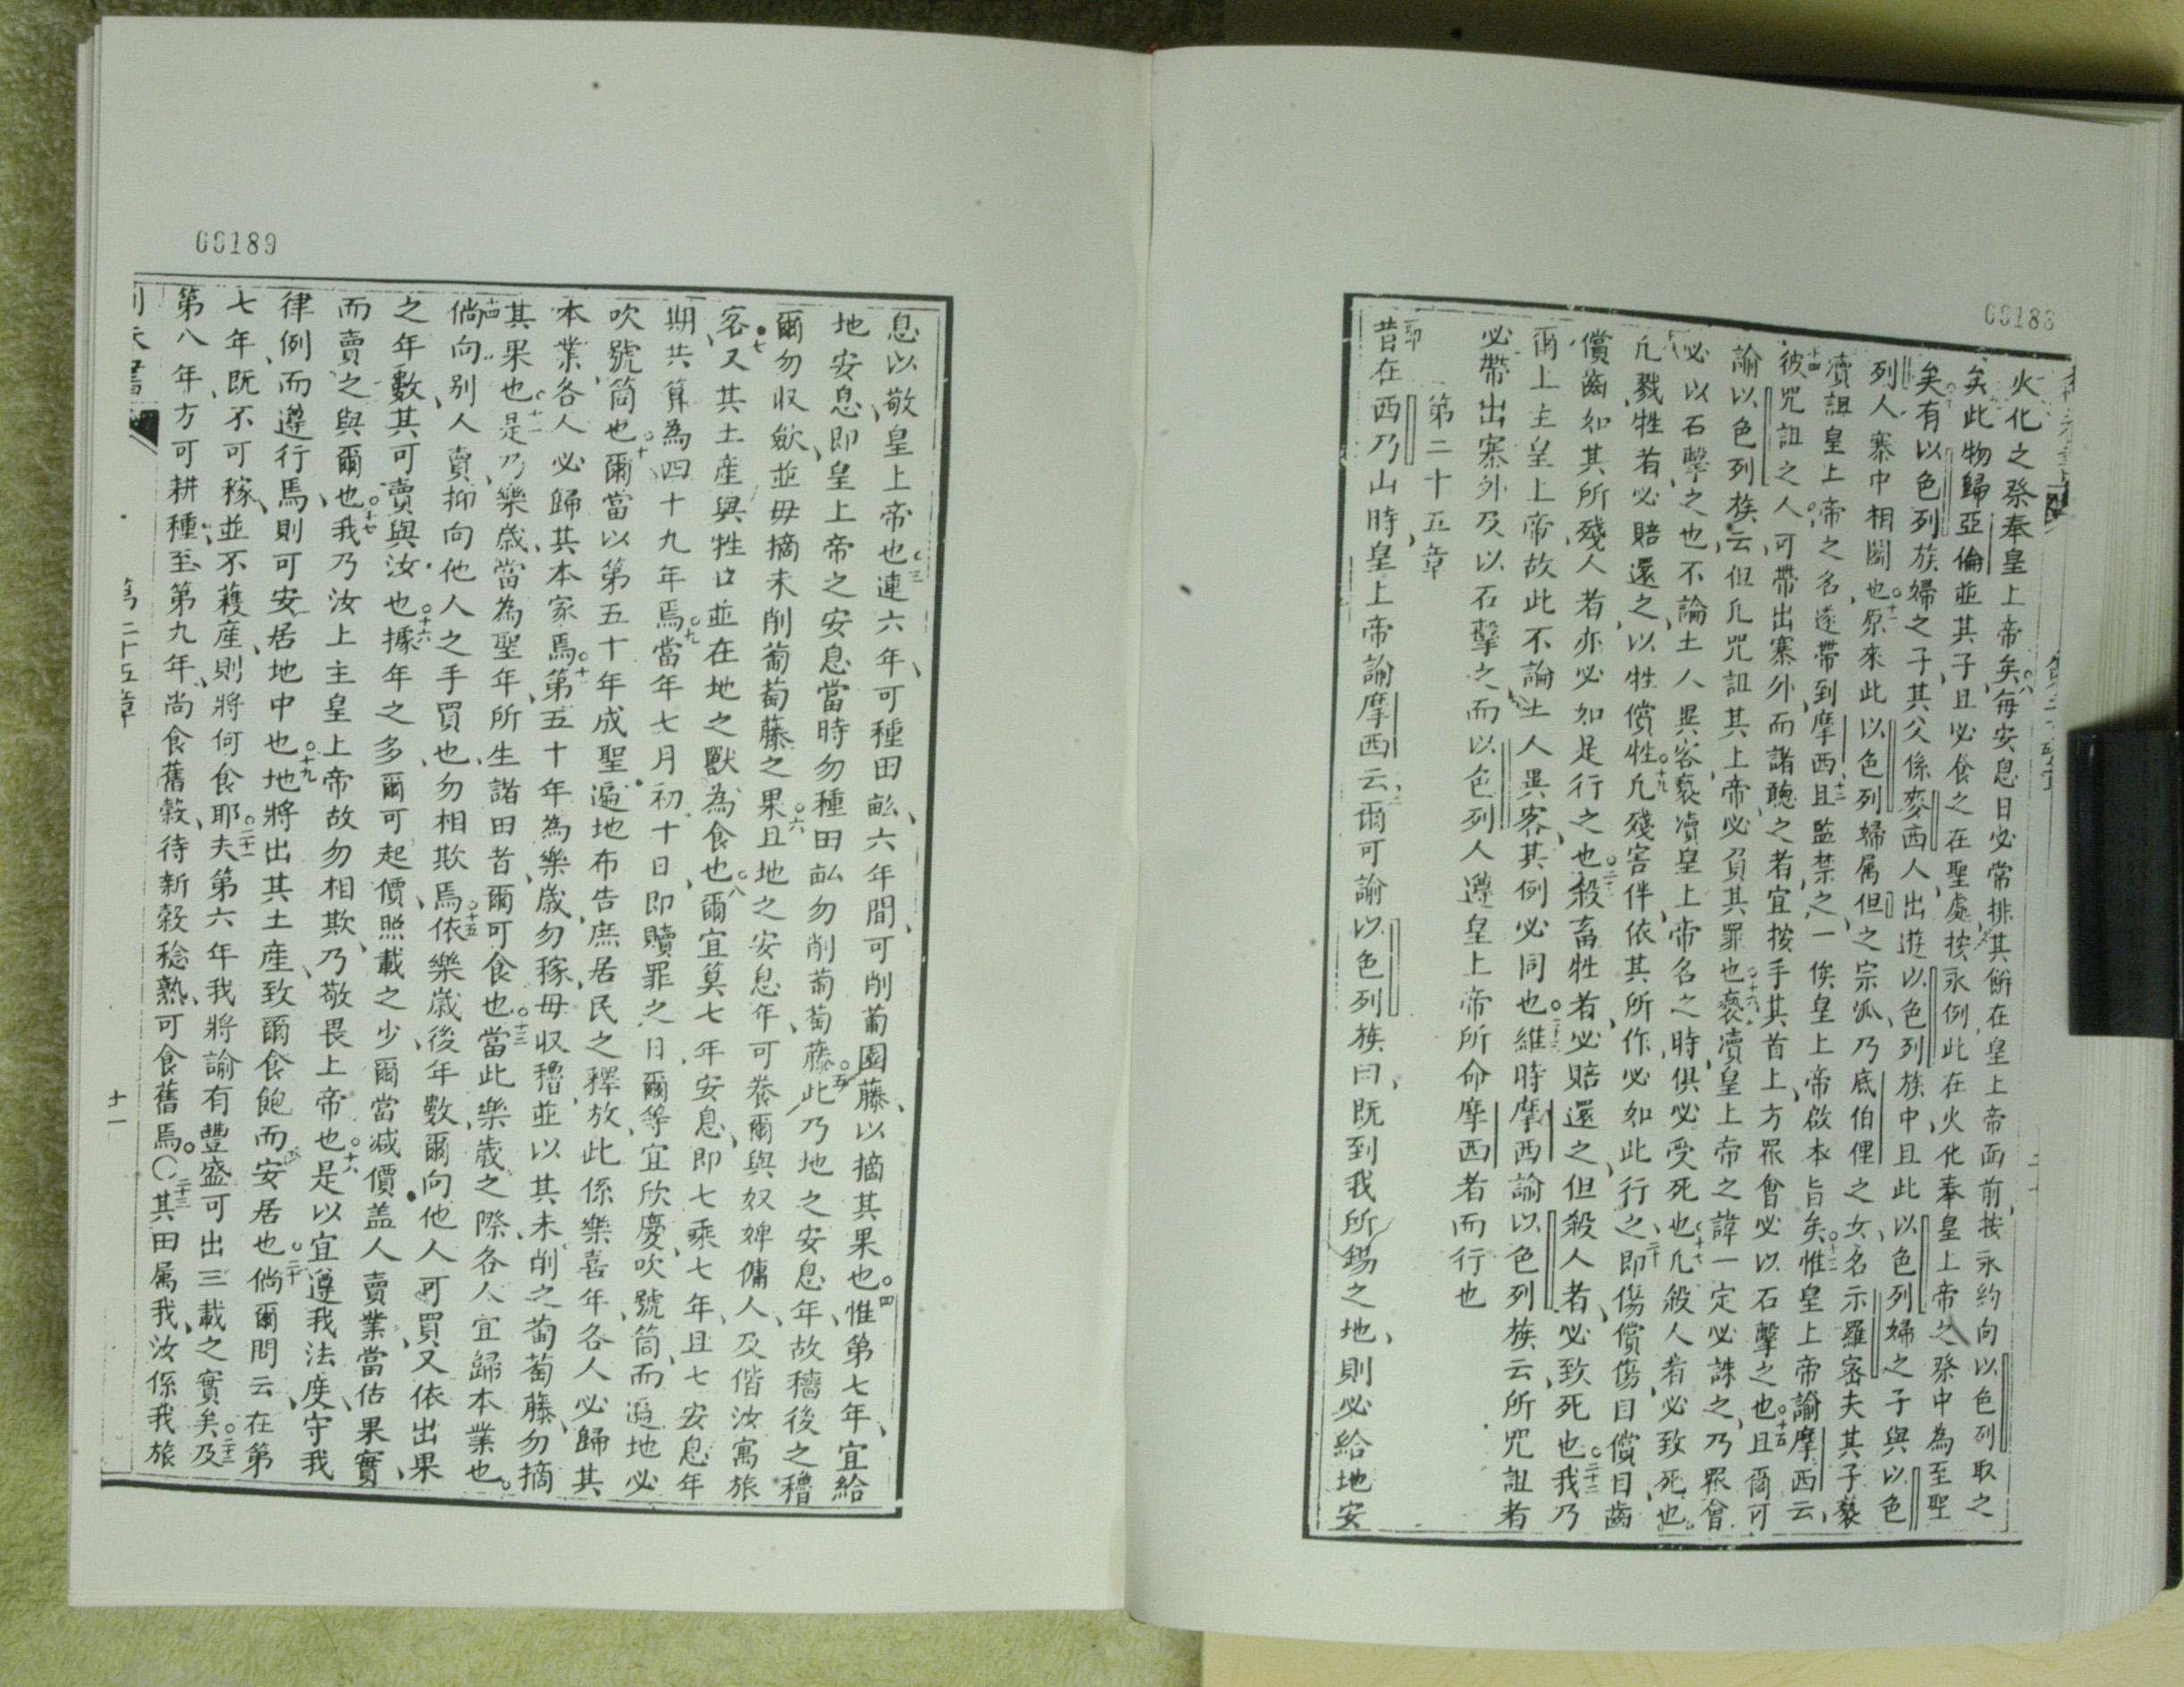 00188
火化之祭奉皇上帝矣每安息日必常排其餅在皇上帝面前按永約向以色列取之
矣此物歸亞倫並其子且必食之在聖處按永例此在火化奉皇上帝之祭中為至聖
矣有以色列族婦之子其父係麥西人出遊以色列族中且此以色列婦之子與以色
列人寨中相鬬也原來此以色列婦属但之宗派乃底伯俚之女名示羅密夫其子褻
瀆詛皇上帝之名遂帶到摩西且監禁之一俟皇上帝啟本旨矣惟皇上帝諭摩西云
彼咒詛之人可帶出寨外而諸聽之者宜按手其首上方眾會必以石擊之也且爾可
諭以色列族云但凡咒詛其上帝必負其罪也褻瀆皇上帝之諱一定必誅之乃眾會
必以石擊之也不論土人異客褻瀆皇上帝名之時俱必受死也凡殺人者必致死也
凡戮牲者必賠還之以牲償牲凡殘害伴依其所作必如此行之即傷償傷目償目齒
償齒如其所殘人者亦必如是行之也殺畜牲者必賠還之但殺人者必致死也我乃
爾上主皇上帝故此不論土人異客其例必同也維時摩西諭以色列族云所咒詛者
必帶出寨外及以石擊之而以色列人遵皇上帝所命摩西者而行也
第二十五章
昔在西乃山時皇上帝諭摩西云爾可諭以色列族曰既到我所錫之地則必給地安
00189
息以敬皇上帝也連六年可種田畝六年間可削葡園藤以摘其果也惟第七年宜給
地安息即皇上帝之安息當時勿種田畝勿削葡萄藤此乃地之安息年故穡後之穭
爾勿收歛並毋摘未削葡萄藤之果且地之安息年可養爾與奴婢傭人及偕汝寓旅
客又其土產與牲口並在地之獸為食也爾宜算七年安息即七乘七年且七安息年
期共算為四十九年焉當年七月初十日即贖罪之日爾等宜欣慶吹號筒而遍地必
吹號筒也爾當以第五十年成聖遍地布告庶居民之釋放此係樂喜年各人必歸其
本業各人必歸其本家焉第五十年為樂歲勿稼毋収穭並以其未削之葡萄藤勿摘
其果也是乃樂歲當為聖年所生諸田者爾可食也當此樂歲之際各人宜歸本業也
倘向别人賣抑向他人之手買也勿相欺焉依樂歲後年數爾向他人可買又依出果
之年數其可賣與汝也據年之多爾可起價照載之少爾當减價盖人賣業當估果實
而賣之與爾也我乃汝上主皇上帝故勿相欺乃敬畏上帝也是以宜遵我法度守我
律例而遵行焉則可安居地中也地將出其土產致爾食飽而安居也倘爾問云在第
七年既不可稼並不穫產則將何食耶夫第六年我將諭有豐盛可出三載之實矣及
第八年方可耕種至第九年尚食舊穀待新穀稔熟可食舊焉〇其田属我汝係我旅
第二十五章
十一